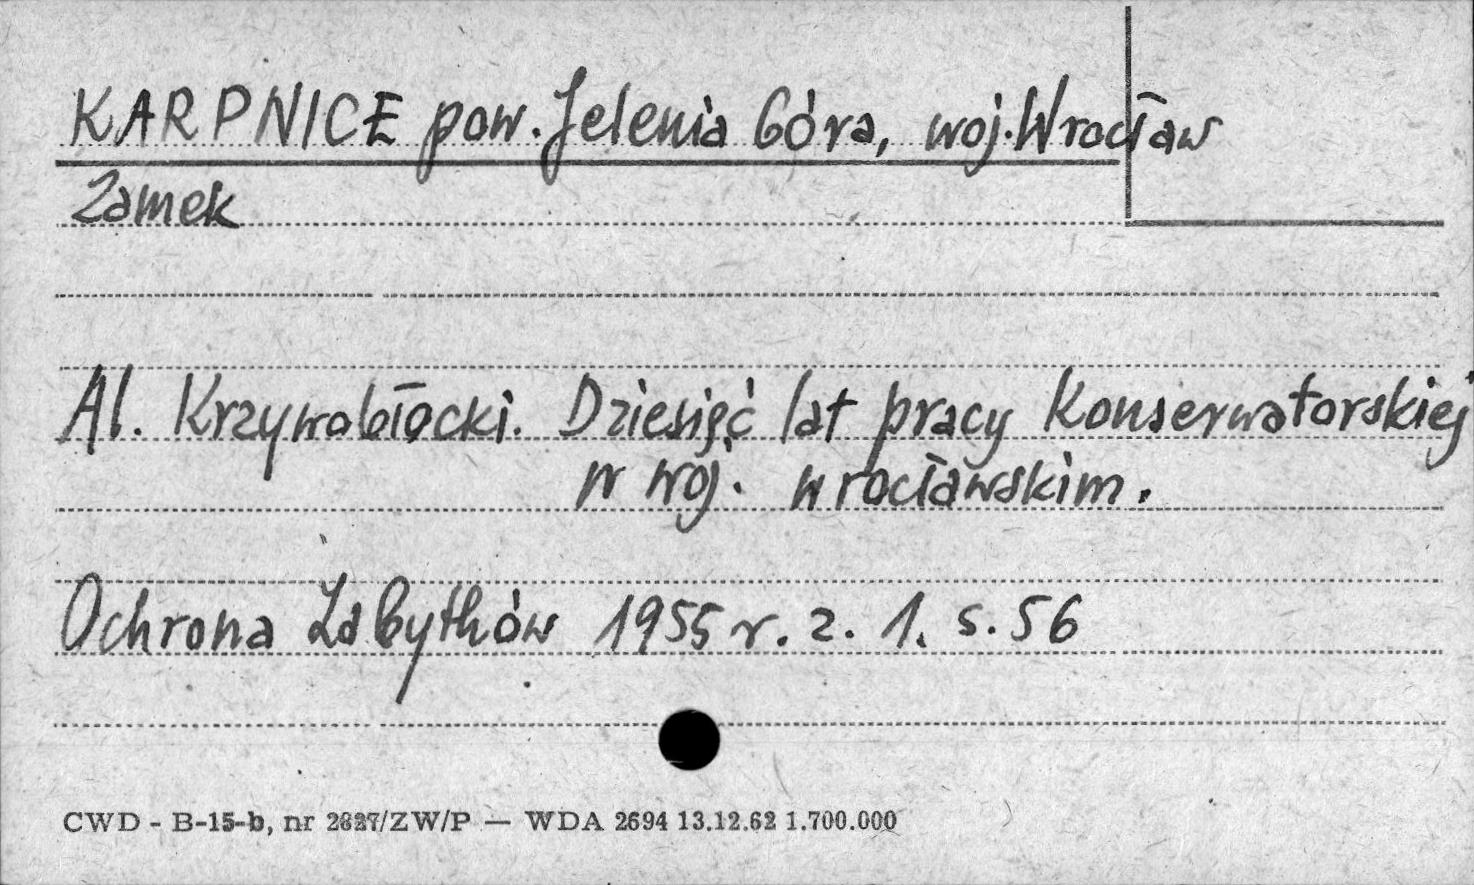 KARPNICE pow. Jelenia Góra, woj. Wrocław
Zamek
Al. Krzywobłocki. Dziesięć lat pracy Konserwatorskiej
w woj. wrocławskim.
Ochrona Zabytków 1955 r. z. 1. s. 56
CWD - B-15-b, nr 2827/ZW/P — WDA 2694 13.12.62 1.700.000